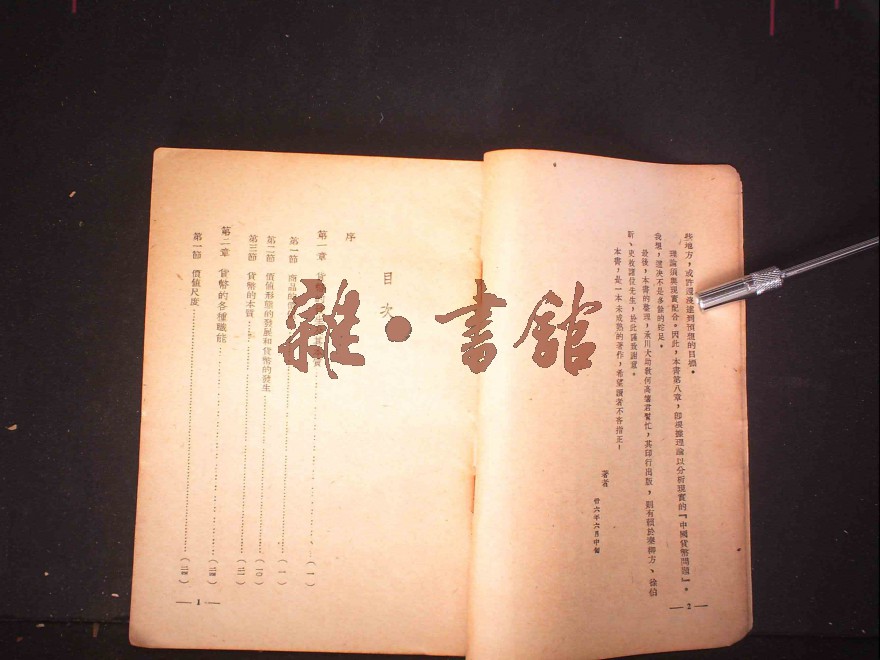 些地方，或許還沒達到預想的目標。
理論須與現實配合。因此，本書第八章，即根據理論以分析現實的『中國貨幣問題』。
我想，這決不是多餘的蛇足。
最後，本書的整理，承川大助教何高箸君幫忙，其印行出版，則有賴於
方、徐伯
昕、史枚諸位先生，於此謹致謝意。
本書，是一本未成熟的著作，希望讀者不吝指正！
著者 卅六年六月中旬
— 2 —
目次
序
第一章 貨幣
（一）
第一節 商品的
（一）
第二節 價值形態的發展和貨幣的發生（一〇）
第三節 貨幣的本質
第二章 貨幣的各種職能
第一節 價值尺度
— 1 —
雜·書館